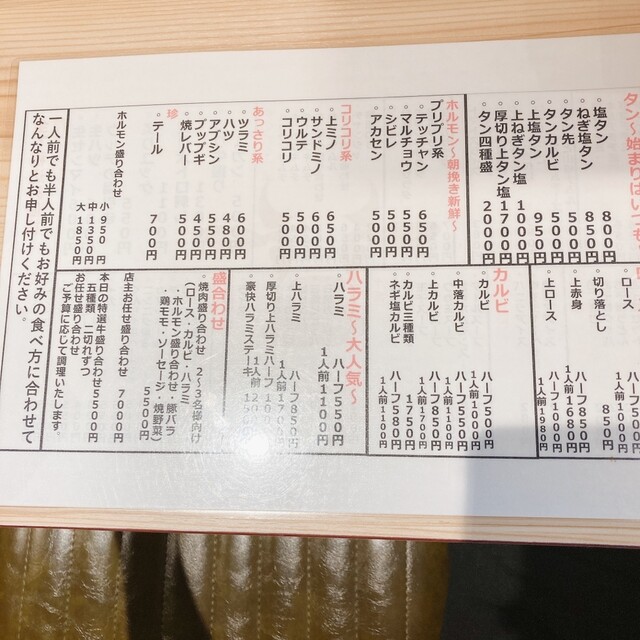 タン～始まりはい
塩タン 800
ねぎ塩タン 850
タン先 500
タンカルビ 550
上塩タン 950円
上ねぎタン塩 1000円
厚切り上タン塩 1700円
タン四種盛 2000円
ホルモン～朝挽き新鮮～
プリプリ系
テッチャン 650円
マルチョウ 550円
シビレ 500円
アカセン 500円
コリコリ系
上ミノ 650円
サンドミノ 600円
ウルテ 500円
コリコリ 500円
あっさり系
ツラミ 600円
ハツ 480円
アブシン 550円
プップギ 450円
焼レバー 500円
珍
テール 700円
ホルモン盛り合わせ
小 950円
中 1300円
大 1850円
ロース
ハーフ
1人前
上赤身 ハーフ850円
1人前1680円
切り落とし 850
上ロース ハーフ1000円
1人前1980円
カルビ
カルビ ハーフ500円
1人前1000円
中落カルビ ハーフ550円
1人前1100円
上カルビ ハーフ850円
1人前1700円
カルビ三種類 1750円
ネギ塩カルビ ハーフ580円
1人前1100円
ハラミ～大人気～
ハラミ ハーフ550円
1人前1100円
上ハラミ ハーフ850円
1人前1700
厚切り上ハラミハーフ
1人前
豪快ハラミステーキ
盛合わせ
焼肉盛り合わせ 2～3名様向け
（ロース・カルビ・ハラミ
・ホルモン盛り合わせ・豚バラ
・鶏モモ・ソーセージ・焼野菜）
5500円
店主お任せ盛り合わせ
7000円
本日の特選牛盛り合わせ5500円
五種類 二切れずつ
お任せ盛り合わせ
ご予算に応じて調理いたします。
一人前でも半人前でもお好みの食べ方に合わせて
なんなりとお申し付けください。